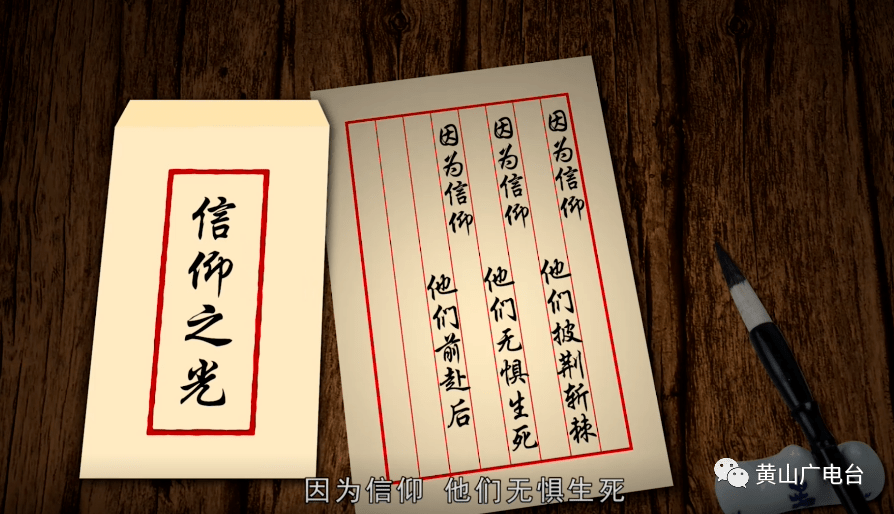 信仰之光
因为信仰 他们披荆斩棘
因为信仰 他们无惧生死
因为信仰 他们前赴后
因为信仰 他们无惧生死
黄山广电台